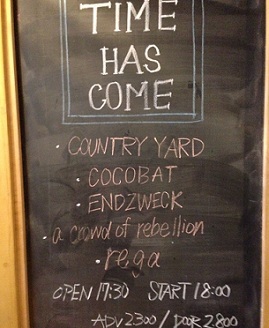 TIME
HAS
COME
・COUNTRY YARD
・COCOBAT
・ENDZWECK
・a crowd of rebellion
・rega
OPEN 17:30 START 18:00
ADV 2300 / DOOR 2800